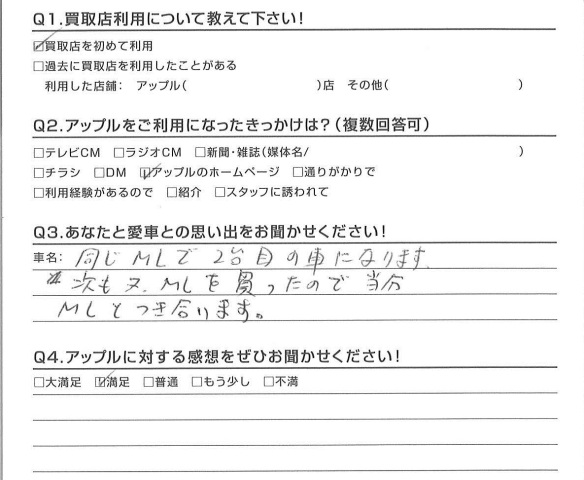 Q1.買取店利用について教えて下さい!
☑買取店を初めて利用
□過去に買取店を利用したことがある
利用した店舗: アップル( )店 その他( )
Q2.アップルをご利用になったきっかけは?(複数回答可)
□テレビCM □ラジオCM □新聞・雑誌(媒体名/ )
□チラシ □DM ☑アップルのホームページ □通りがかりで
□利用経験があるので □紹介 □スタッフに誘われて
Q3.あなたと愛車との思い出をお聞かせください!
車名: 同じMLで2台目の車になります。
次も又、MLを買ったので当分
MLとつき合います。
Q4.アップルに対する感想をぜひお聞かせください!
□大満足 ☑満足 □普通 □もう少し □不満